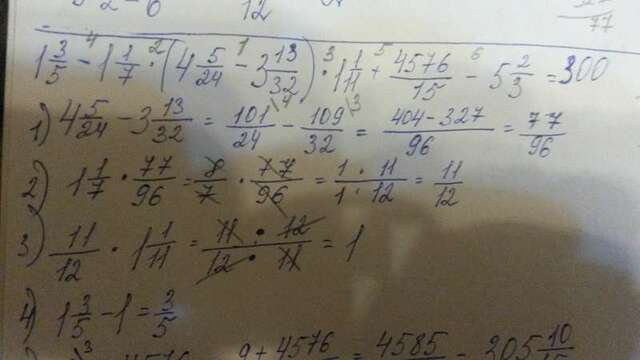 12
77
1 3/5 - 1 1/7 · (4 5/24 - 3 13/32) · 1 1/11 + 4576/15 - 5 2/3 = 300
1) 4 5/24 - 3 13/32 = 101/24 \4 - 109/32 \3 = (404-327)/96 = 77/96
2) 1 1/7 · 77/96 = 8/7 · 77/96 = (1 · 11)/(1 · 12) = 11/12
3) 11/12 · 1 1/11 = (11 · 12)/(12 · 11) = 1
4) 1 3/5 - 1 = 3/5
9 + 4576 = 4585 = 305 10